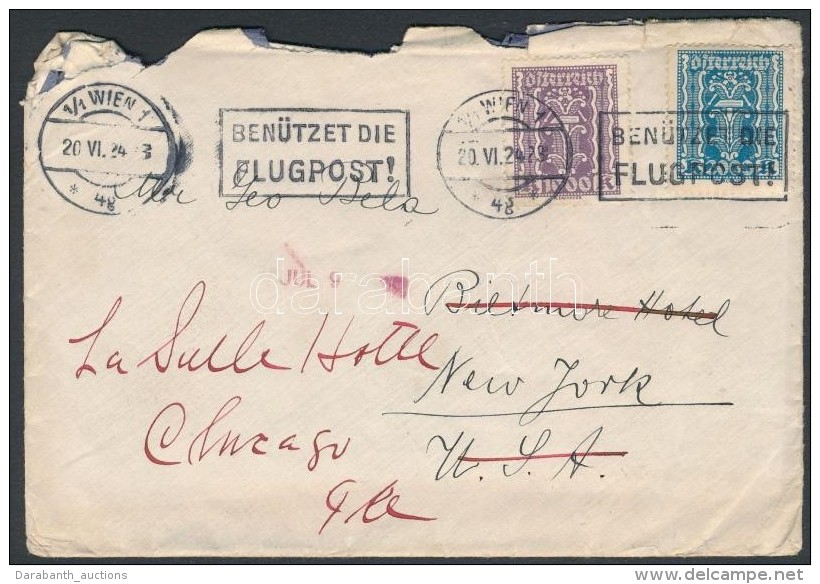 1/1 WIEN 1
20. VI. 24
* 4g *
BENÜTZET DIE
FLUGPOST!
1/1 WIEN 1
20. VI. 24
* 4g *
BENÜTZET DIE
FLUGPOST!
Österreich
1000K
Österreich
K
Geo Bela
JUL 9
Biltmore Hotel
New York
U. S. A.
La Salle Hotel
Chicago
Ill
darabanth
Darabanth_auctions
delcampe.net